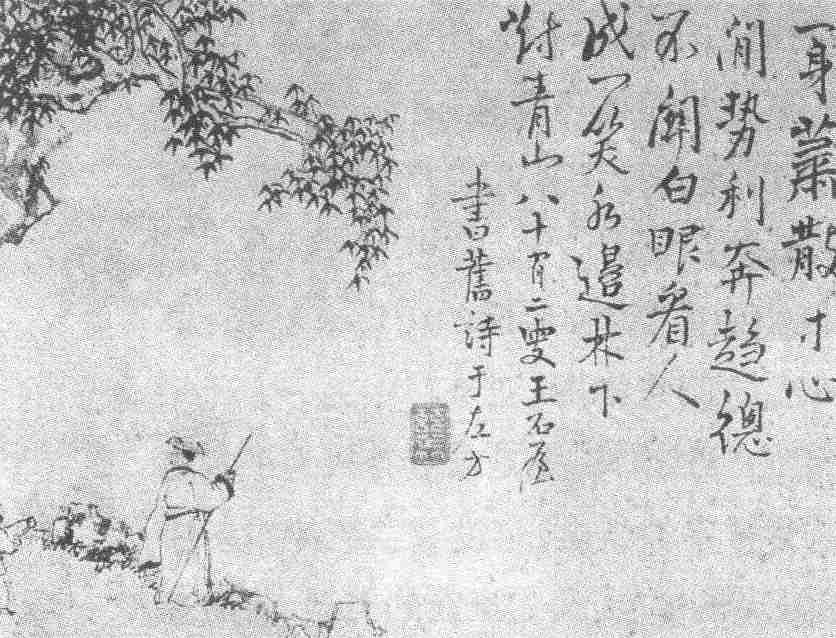 一身蕭散寸心
閒勢利奔趨總
不關白眼看人
成一笑水邊林下
對青山八十有二叟王石
書舊詩于左方